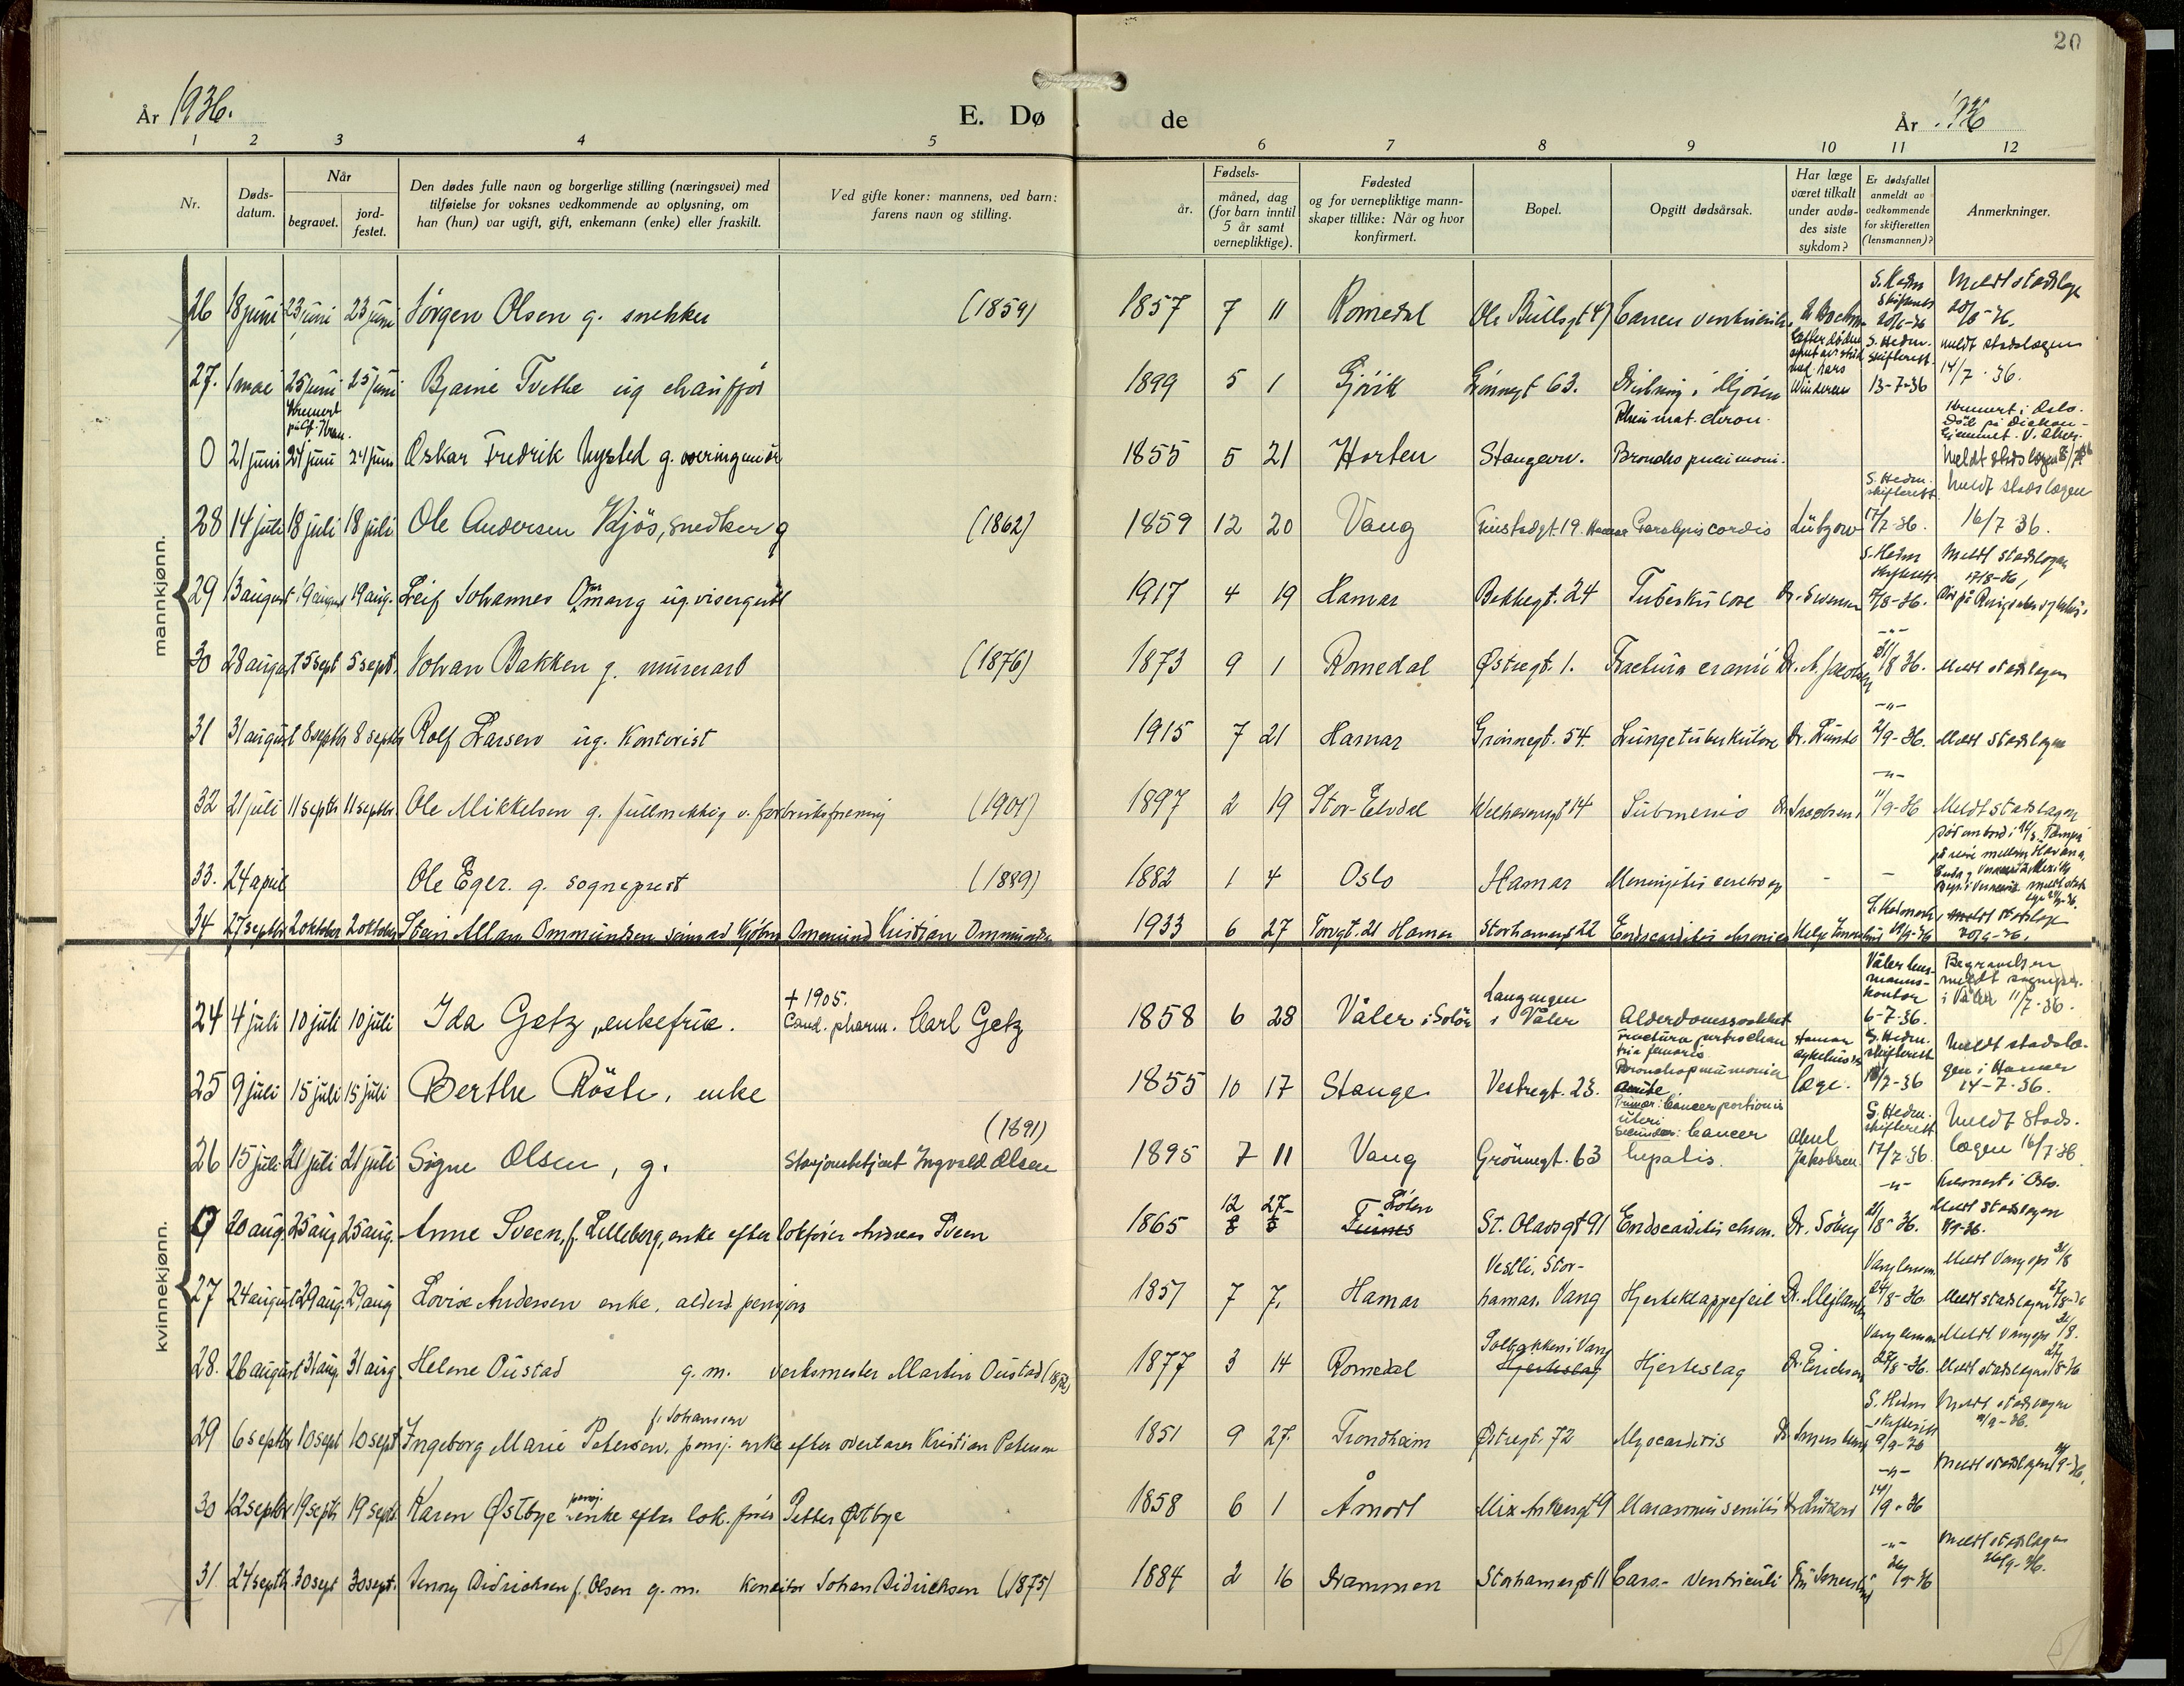 20
År 1936.
E. Dø
de
År 1936
1 2 3 4 5 6 7 8 9 10 11 12
Nr.
Døds-
datum.
Når
begravet.
jord-
festet.
Den dødes fulle navn og borgerlige stilling (næringsvei) med
tilføielse for voksnes vedkommende av oplysning, om
han (hun) var ugift, gift, enkemann (enke) eller fraskilt.
Ved gifte koner: mannens, ved barn:
farens navn og stilling.
Fødsels-
år.
måned, dag
(for barn inntil
5 år samt
vernepliktige).
Fødested
og for vernepliktige mann-
skaper tillike: Når og hvor
konfirmert.
Bopel.
Opgitt dødsårsak.
Har læge
været tilkalt
under avdø-
des siste
sykdom?
Er dødsfallet
anmeldt av
vedkommende
for skifteretten
(lensmannen)?
Anmerkninger.
mannkjønn.
26 18 juni 23 juni 23 juni Jörgen Olsen g. snekker (1859) 1857 7 11 Romedal Ole Bullsgt 4 Cancer ventriculi 20/6-36 Meldt stadslæge 20/6-36.
27. 1 mai 25 juni 25 juni Bjarne Tvethe ug chaufför 1899 5 1 Gjövik Grönnegt 63. Drukning i Mjösen S. Hedm. skifterett. 13-7-36 meldt stadslægen 14/7-36.
0 21 juni 24 juni 24 juni Oskar Fredrik Nysted g. overingeniör 1855 5 21 Horten Stangevn. Rheumat. chron. Broncho pneumoni. Kremert i Oslo. Död på Diakon-hjemmet V. Aker. Meldt stadslægen
28 14 juli 18 juli 18 juli Ole Andersen Kjös, snedker g (1862) 1859 12 20 Vang Finstadgt. 19. Hamar Paralysis cordis Lützow S. Hedm. skifterett 17/7-36. Meldt stadslægen 16/7 36.
29 13 august 19 august 19 aug. Leif Johannes Ommang ug. visergutt 1917 4 19 Hamar Bekkegt. 24 Tuberkulose S. Hedm skifterett /8-36. Meldt stadslægen 17/8-36,
30 28 august 5 sept 5 sept. Johan Bakken g. murerarb (1876) 1873 9 1 Romedal Østregt. 1. Fractura cranii Dr. N. Jacobsen -"- 31/8 36. Meldt stadslægen
31 31 august 8 septbr 8 septbr Rolf Larsen ug. Kontorist 1915 7 21 Hamar Grönnegt. 54. Lungetuberkulose Dr. Lunde -"- 2/9-36. Meldt stadslægen
32 21 juli 11 septbr 11 septbr. Ole Mikkelsen g. fullmektig v. forbruksforening (1901) 1897 2 19 Stor-Elvdal Welhavensgt 14 Dr. Jacobsen -"- 11/9-36 Meldt stadslægen
33. 24 april Ole Eger. g. sogneprest (1889) 1882 1 4 Oslo Hamar Meningitis cerebro sp - -
34 27 septbr 2 oktober 2 oktober Stein Allan Ommundsen Ommund Kristian Ommundsen 1933 6 27 Torvgt. 21 Hamar Storhamargt 22 Endocarditis chronica 29/9-36 meldt stadslæge
kvinnekjønn.
24 4 juli 10 juli 10 juli Ida Getz, enkefrue. + 1905. Cand. pharm. Carl Getz 1858 6 28 Våler i Solör i Våler Alderdomssvakhet Våler lens-manns-kontor 6-7-36. Begravelsen meldt sognepr. i Våler 11/7-36.
25 9 juli 15 juli 15 juli Berthe Röste, enke 1855 10 17 Stange Vestregt. 23. Bronchopneumonia acuta Hamar sykehus's læge. S. Hedm. skifterett /7-36 Meldt stadslæ-gen i Hamar 14-7-36.
26 15 juli 21 juli 21 juli Signe Olsen, g. (1891) Stasjonsbetjent Ingvald Olsen 1895 7 11 Vang Grönnegt. 63 Primær: Cancer portionis uteri Secundær: Cancer hepatis. Jakobsen S. Hedm. skifterett 17/7-36. Meldt stads-lægen 16/7-36
0 20 aug. 25 aug 25 aug. Anne Sveen, f. Lilleberg, enke efter lokförer Andreas Sveen 1865 12 27 Löten St. Olavsgt 91 Endocarditis chron. Dr. Söberg -"- 21/8-36. Kremert i Oslo. Meldt stadslægen
27 24 august 29 aug. 29 aug Lovise Andersen enke, alderd. pensjon 1857 7 7. Hamar Vestli, Stor-hamar. Vang Hjerteklappefeil Vang lensm. 24/8-36. Meldt Vang ops 31/8 Meldt stadslægen 27/8-36
28. 26 august 31 aug. 31 aug Helene Oustad g. m. verksmester Martin Oustad 1877 3 14 Romedal Solbakken i Vang Hjerteslag Hjerteslag Dr. Erichsen Vang lensm 27/8-36. Meldt Vang ops 31/8. Meldt stadslægen 27/8-36
29 6 septbr 10 sept 10 sept Ingeborg Marie Petersen, f. Johansen pensj. enke efter overlærer Kristian Petersen 1851 9 27. Trondheim Östregt. 72 Myocarditis S. Hedm skifterett 9/9-36 Meldt stadslægen 9/9-36.
30 12 septbr 19 septb 19 septb. Karen Østbye pensj. enke efter lok. förer Petter Østbye 1858 6 1 Åmodt Marasmus senilis -"- 14/9-36 Meldt stadslægen 14/9-36.
31 24 septb. 30 sept 30 sept. Jenny Didrichsen f. Olsen g. m. konditor Johan Didrichsen (1875) 1884 2 16 Drammen Storhamargt 11 Canc. ventriculi -"- 26/9-36 Meldt stadslægen 26/9-36.